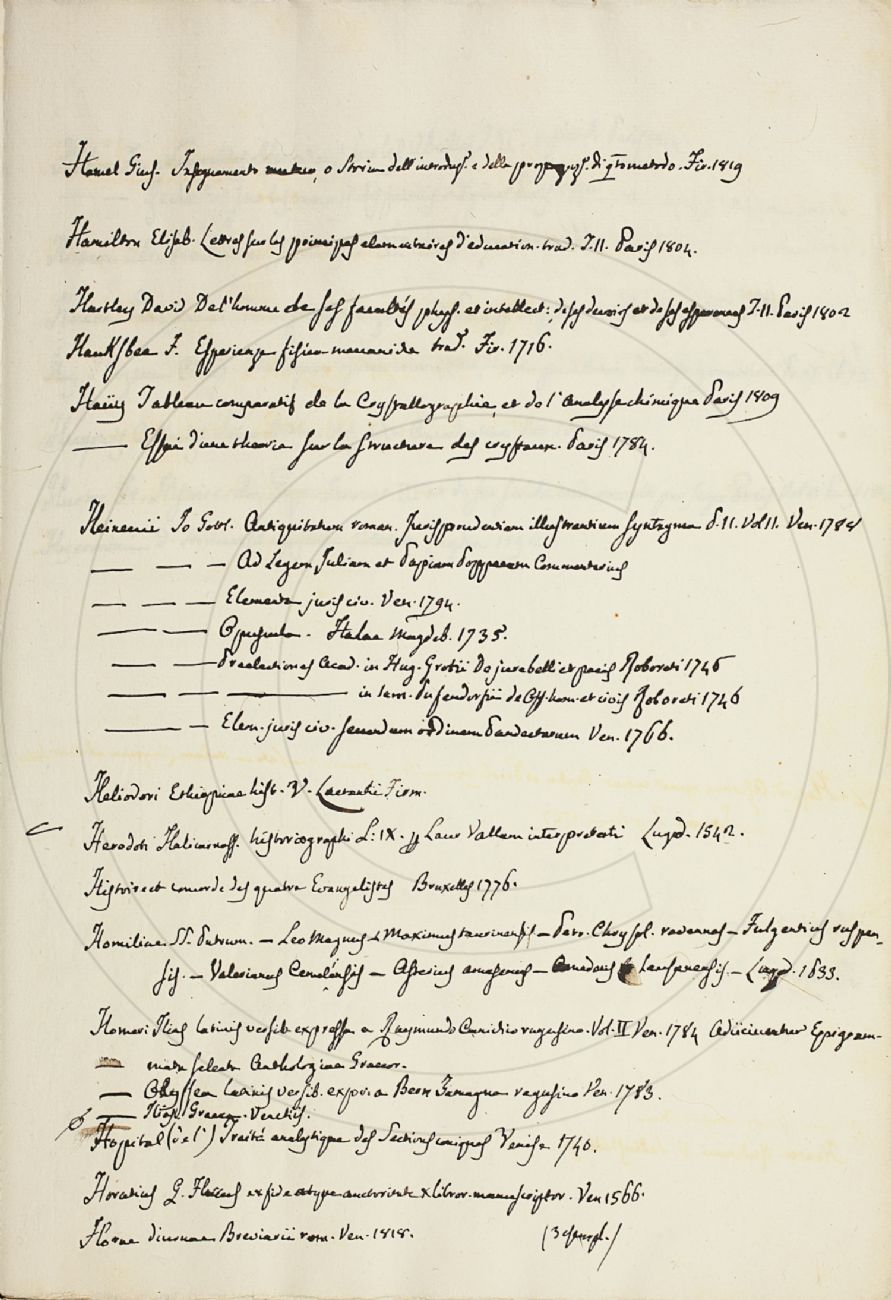 Hamel Gius. Insegnamento mutuo, o Storia dell'introduz. e della propagaz. di qto metodo. Fir. 1819
Hamilton Elisab. Lettres sur les principes elementaires d'education. trad. T. II. Paris 1804.
Hartley David De l'homme de ses facultés phys. et intellect: de ses devoirs et de ses esperances T. II. Paris 1802
Hauksbee F. Esperienze fisico meccaniche trad. Fir. 1716.
Haüy Tableau comparatif de la Crystallographie, et de l'Analyse chimique Paris 1809
—— Essai d'une theorie sur la structure des crystaux. Paris 1784.
Heineccii Jo Gotl. Antiquitatum roman. Jurisprudentiam illustrantium Syntagma P. II. Vol II. Ven. 178
— — — Ad Legem Juliam et Papiam Poppaeam Commentarius
— — — Elementa juris civ. Ven. 1794.
— — Opuscula. Halae Magdeb. 1735.
— — Praelectiones Acad. in Hug. Grotii De jure belli et pacis Roboreti 1746
— — —— in Sam. Pufendorfii de Off. hom. et civis Roboreti 1746
—— — Elem. juris civ. secundum ordinem Pandectarum Ven. 1766.
Heliodori Ethiopicae hist. V. Lactantii Firm.
Herodoti Halicarnass. historiographi L: IX. Laur Vallam interpretati Lugd. 1542.
Histoire et concorde des quatre Evangelistes Bruxelles 1776.
Homiliae SS. Patrum. — Leo Magnus & Maximus taurinensis — Petr. Chrysol. ravennas — Fulgentius ruspen-
sis. — Valerianus Cemelensis — Asterius amasenus — Amedeus Lausanensis — Lugd. 1633.
Homeri Ilias latinis versib. expressa a Raymundo Cunichio ragusino. Vol. II Ven. 1784 Adiiciuntur Epigram-
mata selecta Anthologiae Graecor.
— Odyssea latinis versib. expr. a Bern Zamagna ragusino Ven. 1783.
— Ilias. Graeca. Venetiis.
Hospital (de l') Traité analytique des Sections coniques Venise 1740.
Horatius Q. Flaccus ex fide atque auctoritate X libror. manuscriptor. Ven 1566.
Horae diurnae Breviarii rom. Ven. 1818. (3 esempl.)